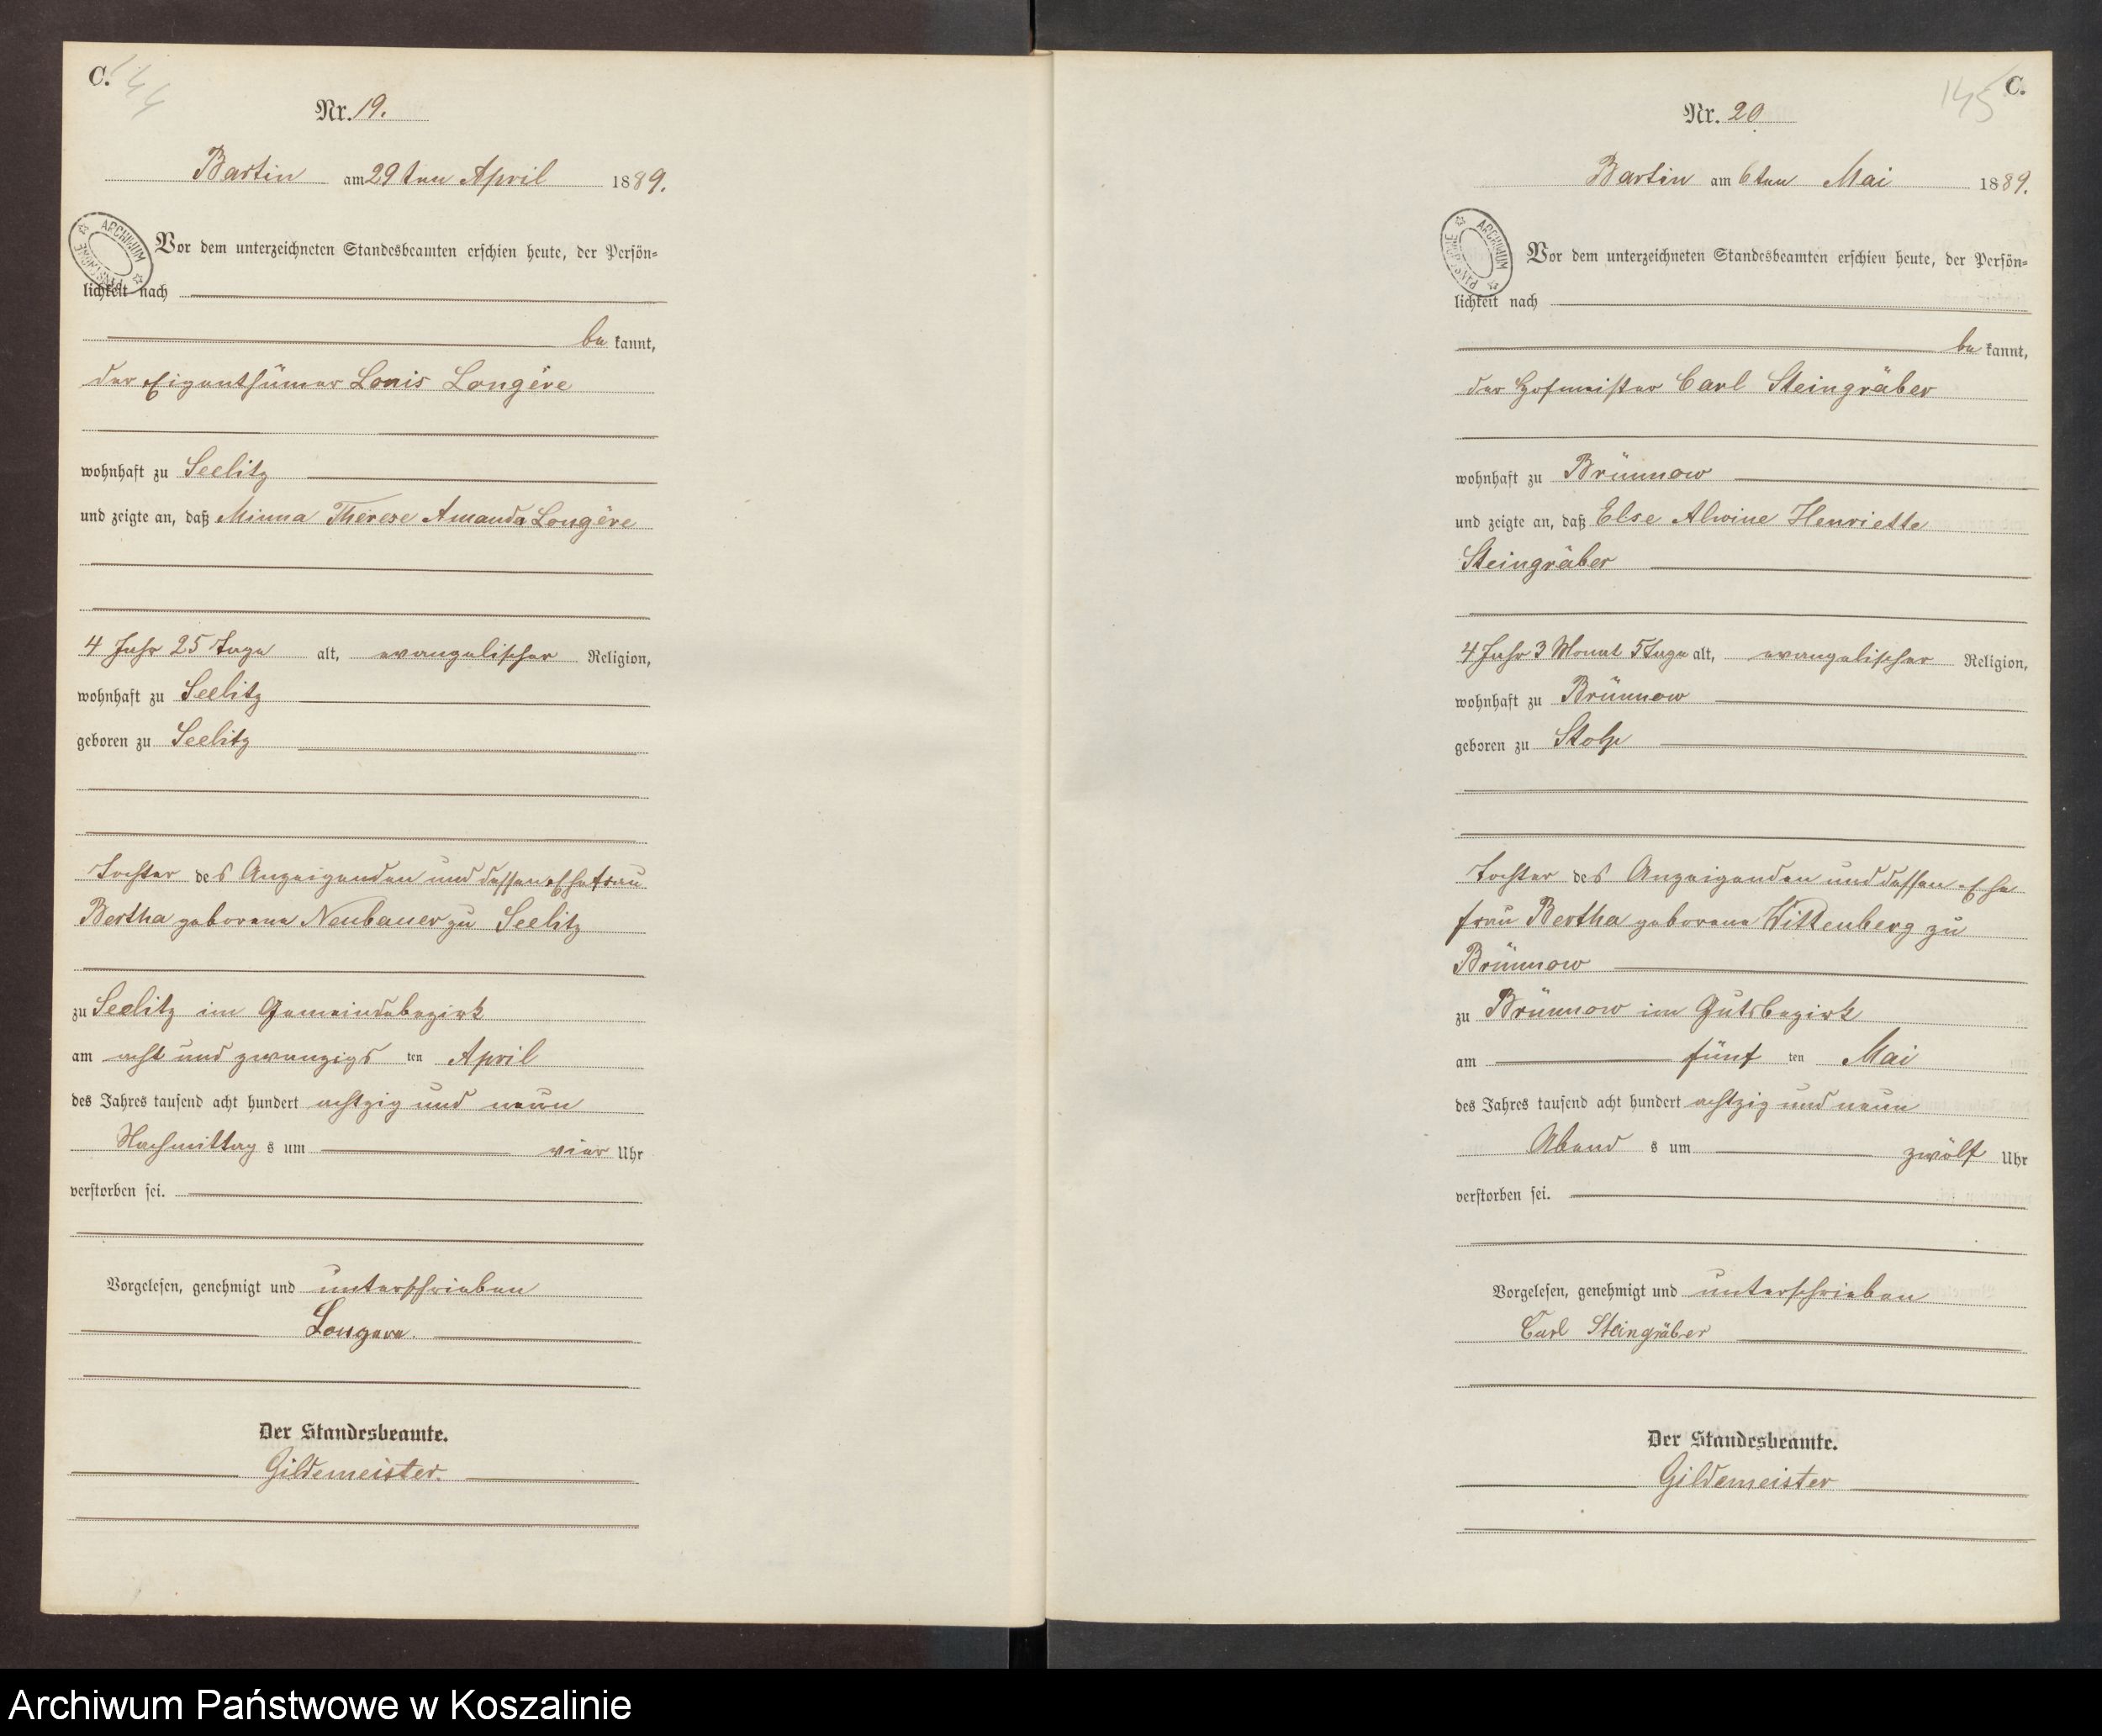 C.
144
Nr. 19.
Bartin am 29ten April 1889.
ARCHIWUM PAŃSTWOWE
Vor dem unterzeichneten Standesbeamten erschien heute, der Persön=
lichkeit nach
be kannt,
der Eigenthümer Louis Longère
wohnhaft zu Seelitz
und zeigte an, daß Minna Therese Amanda Longère
4 Jahr 25 Tage alt, evangelischer Religion,
wohnhaft zu Seelitz
geboren zu Seelitz
Tochter des Anzeigenden und dessen Ehefrau
Bertha geborene Neubauer zu Seelitz
zu Seelitz im Gemeindebezirk
am acht und zwanzigs ten April
des Jahres tausend acht hundert achtzig und neun
Nachmittag s um vier Uhr
verstorben sei.
Vorgelesen, genehmigt und unterschrieben
Longere.
Der Standesbeamte.
Gildemeister.
C.
145
Nr. 20
Bartin am 6ten Mai 1889.
ARCHIWUM PAŃSTWOWE
Vor dem unterzeichneten Standesbeamten erschien heute, der Persön=
lichkeit nach
be kannt,
der Hofmeister Carl Steingräber
wohnhaft zu Brünnow
und zeigte an, daß Else Alwine Henriette
Steingräber
4 Jahr 3 Monat 5 Tage alt, evangelischer Religion,
wohnhaft zu Brünnow
geboren zu Stolp
Tochter des Anzeigenden und dessen Ehe
frau Bertha geborene Wittenberg zu
Brünnow
zu Brünnow im Gutsbezirk
am fünf ten Mai
des Jahres tausend acht hundert achtzig und neun
Abend s um zwölf Uhr
verstorben sei.
Vorgelesen, genehmigt und unterschrieben
Carl Steingräber
Der Standesbeamte.
Gildemeister
Archiwum Państwowe w Koszalinie